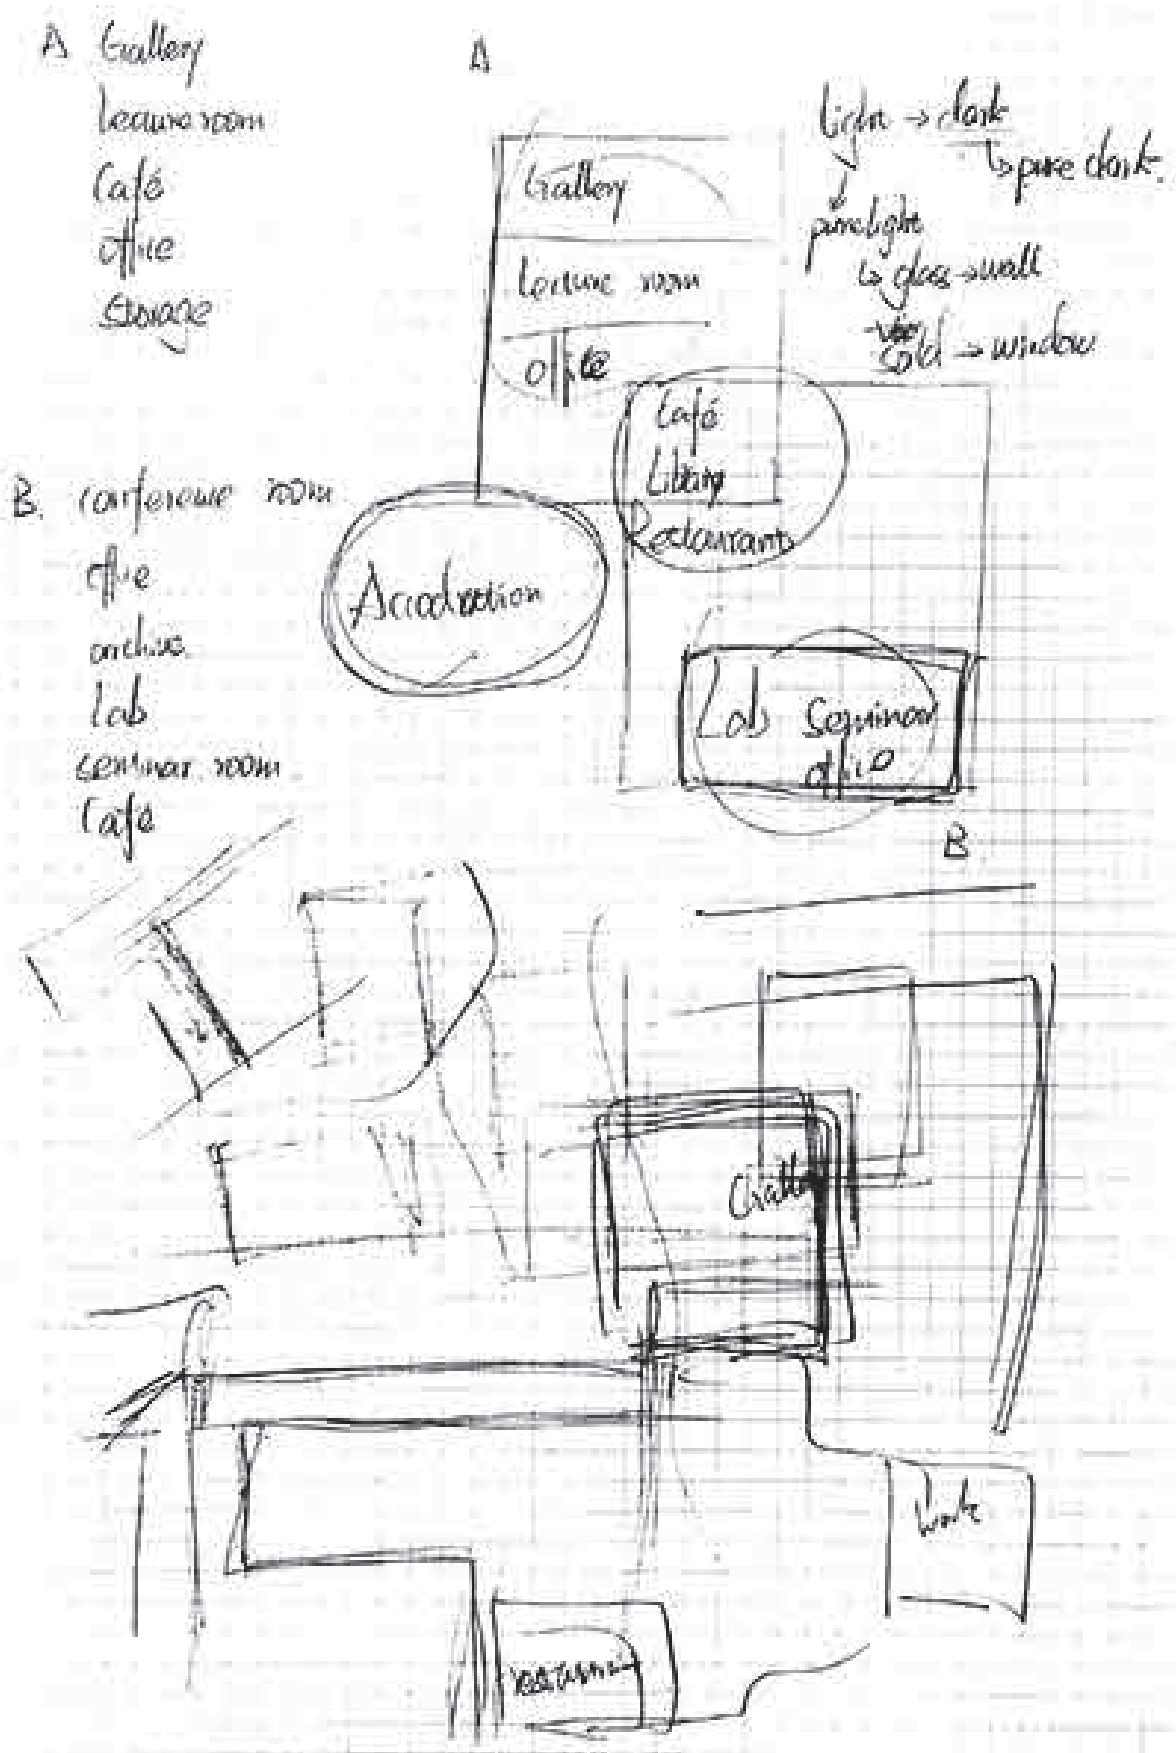 A Gallery
Lecture room
Café
office
storage
A
Gallery
Lecture room
office
light → dark
↳ pure dark.
pure light
↳ glass → wall
solid → window
Café
Library
Restaurant
B. conference room
office
archive
Lab
seminar room
Café
Lab Seminar
office
B
Galle
work